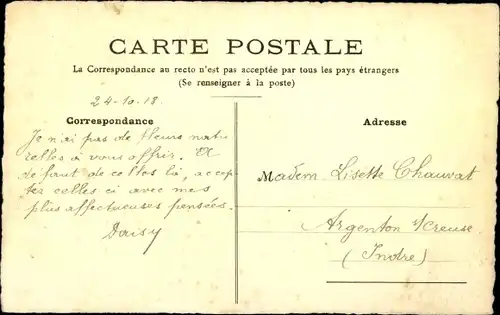 CARTE POSTALE
La Correspondance au recto n'est pas acceptée par tous les pays étrangers
(Se renseigner à la poste)
24-10-18.
Correspondance
Je n'ai pas de fleurs natu
relles à vous offrir. A
defaut de celles là, accep
tez celles ci avec mes
plus affectueuses pensées.
Daisy
Adresse
Madem. Lisette Chauvat
Argenton s/creuse
(Indre)